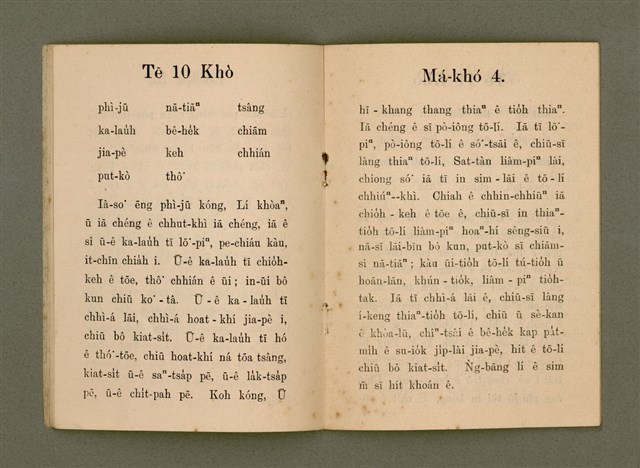 Tē 10 Khò
phì-jū nā-tiāⁿ tsâng
ka-laúh bê-hék chiām
jia-pè keh chhián
put-kò thô͘
Iâ-so͘ ēng phì-jū kóng, Lí khòaⁿ,
ū iā chéng ê chhut-khì iā chéng, iā ê
sî ū-ê ka-laúh tī lō͘-piⁿ, pe-chiáu kàu,
it-chīn chiáh i. Ū-ê ka-laúh tī chióh-
keh ê tōe, thô͘ chhián ê ūi; in-ūi bô
kun chiū ko͘-tâ. Ū-ê ka-laúh tī
chhì-á lāi, chhì-á hoat-khí jia-pè i,
chiū bô kiat-sít. Ū-ê ka-laúh tī hó
ê thó͘-tōe, chiū hoat-khí ná tōa tsâng,
kiat-sít ū-ê saⁿ-tsáp pē, ū-ê lák-tsáp
pē, ū-ê chít-pah pē. Koh kóng, Ū
Má-khó 4.
hī-khang thang thiaⁿ ê tióh thiaⁿ.
Iā chéng ê sī pò-iông tō-lí. Iā tī lō͘-
piⁿ, pò-iông tō-lí ê só͘-tsāi ê, chiū-sī
lâng thiaⁿ tō-lí, Sat-tàn liâm-piⁿ lâi,
chiong só͘ iā tī in sim-lāi ê tō-lí
chhiúⁿ--khì. Chiah ê chhin-chhiūⁿ iā
chióh-keh ê tōe ê, chiū-sī in thiaⁿ-
tióh tō-lí liâm-piⁿ hoaⁿ-hí sêng-siū i,
nā-sī lāi-bīn bô kun, put-kò sī chiām-
sî nā-tiāⁿ; kàu ūi-tióh tō-lí tú-tióh ū
hoān-lān, khún-tiók, liâm-piⁿ tióh-
tak. Iā tī chhì-á lāi ê, chiū-sī lâng
í-keng thiaⁿ-tióh tō-lí, chiū ū sè-kan
ê khòa-lū, chîⁿ-tsâi ê bê-hék kap pát-
míh ê su-iók jíp-lâi jia-pè, hit ê tō-lí
chiū bô kiat-sít. Ǹg-bāng lí ê sim
m̄ sī hit khoán ê.